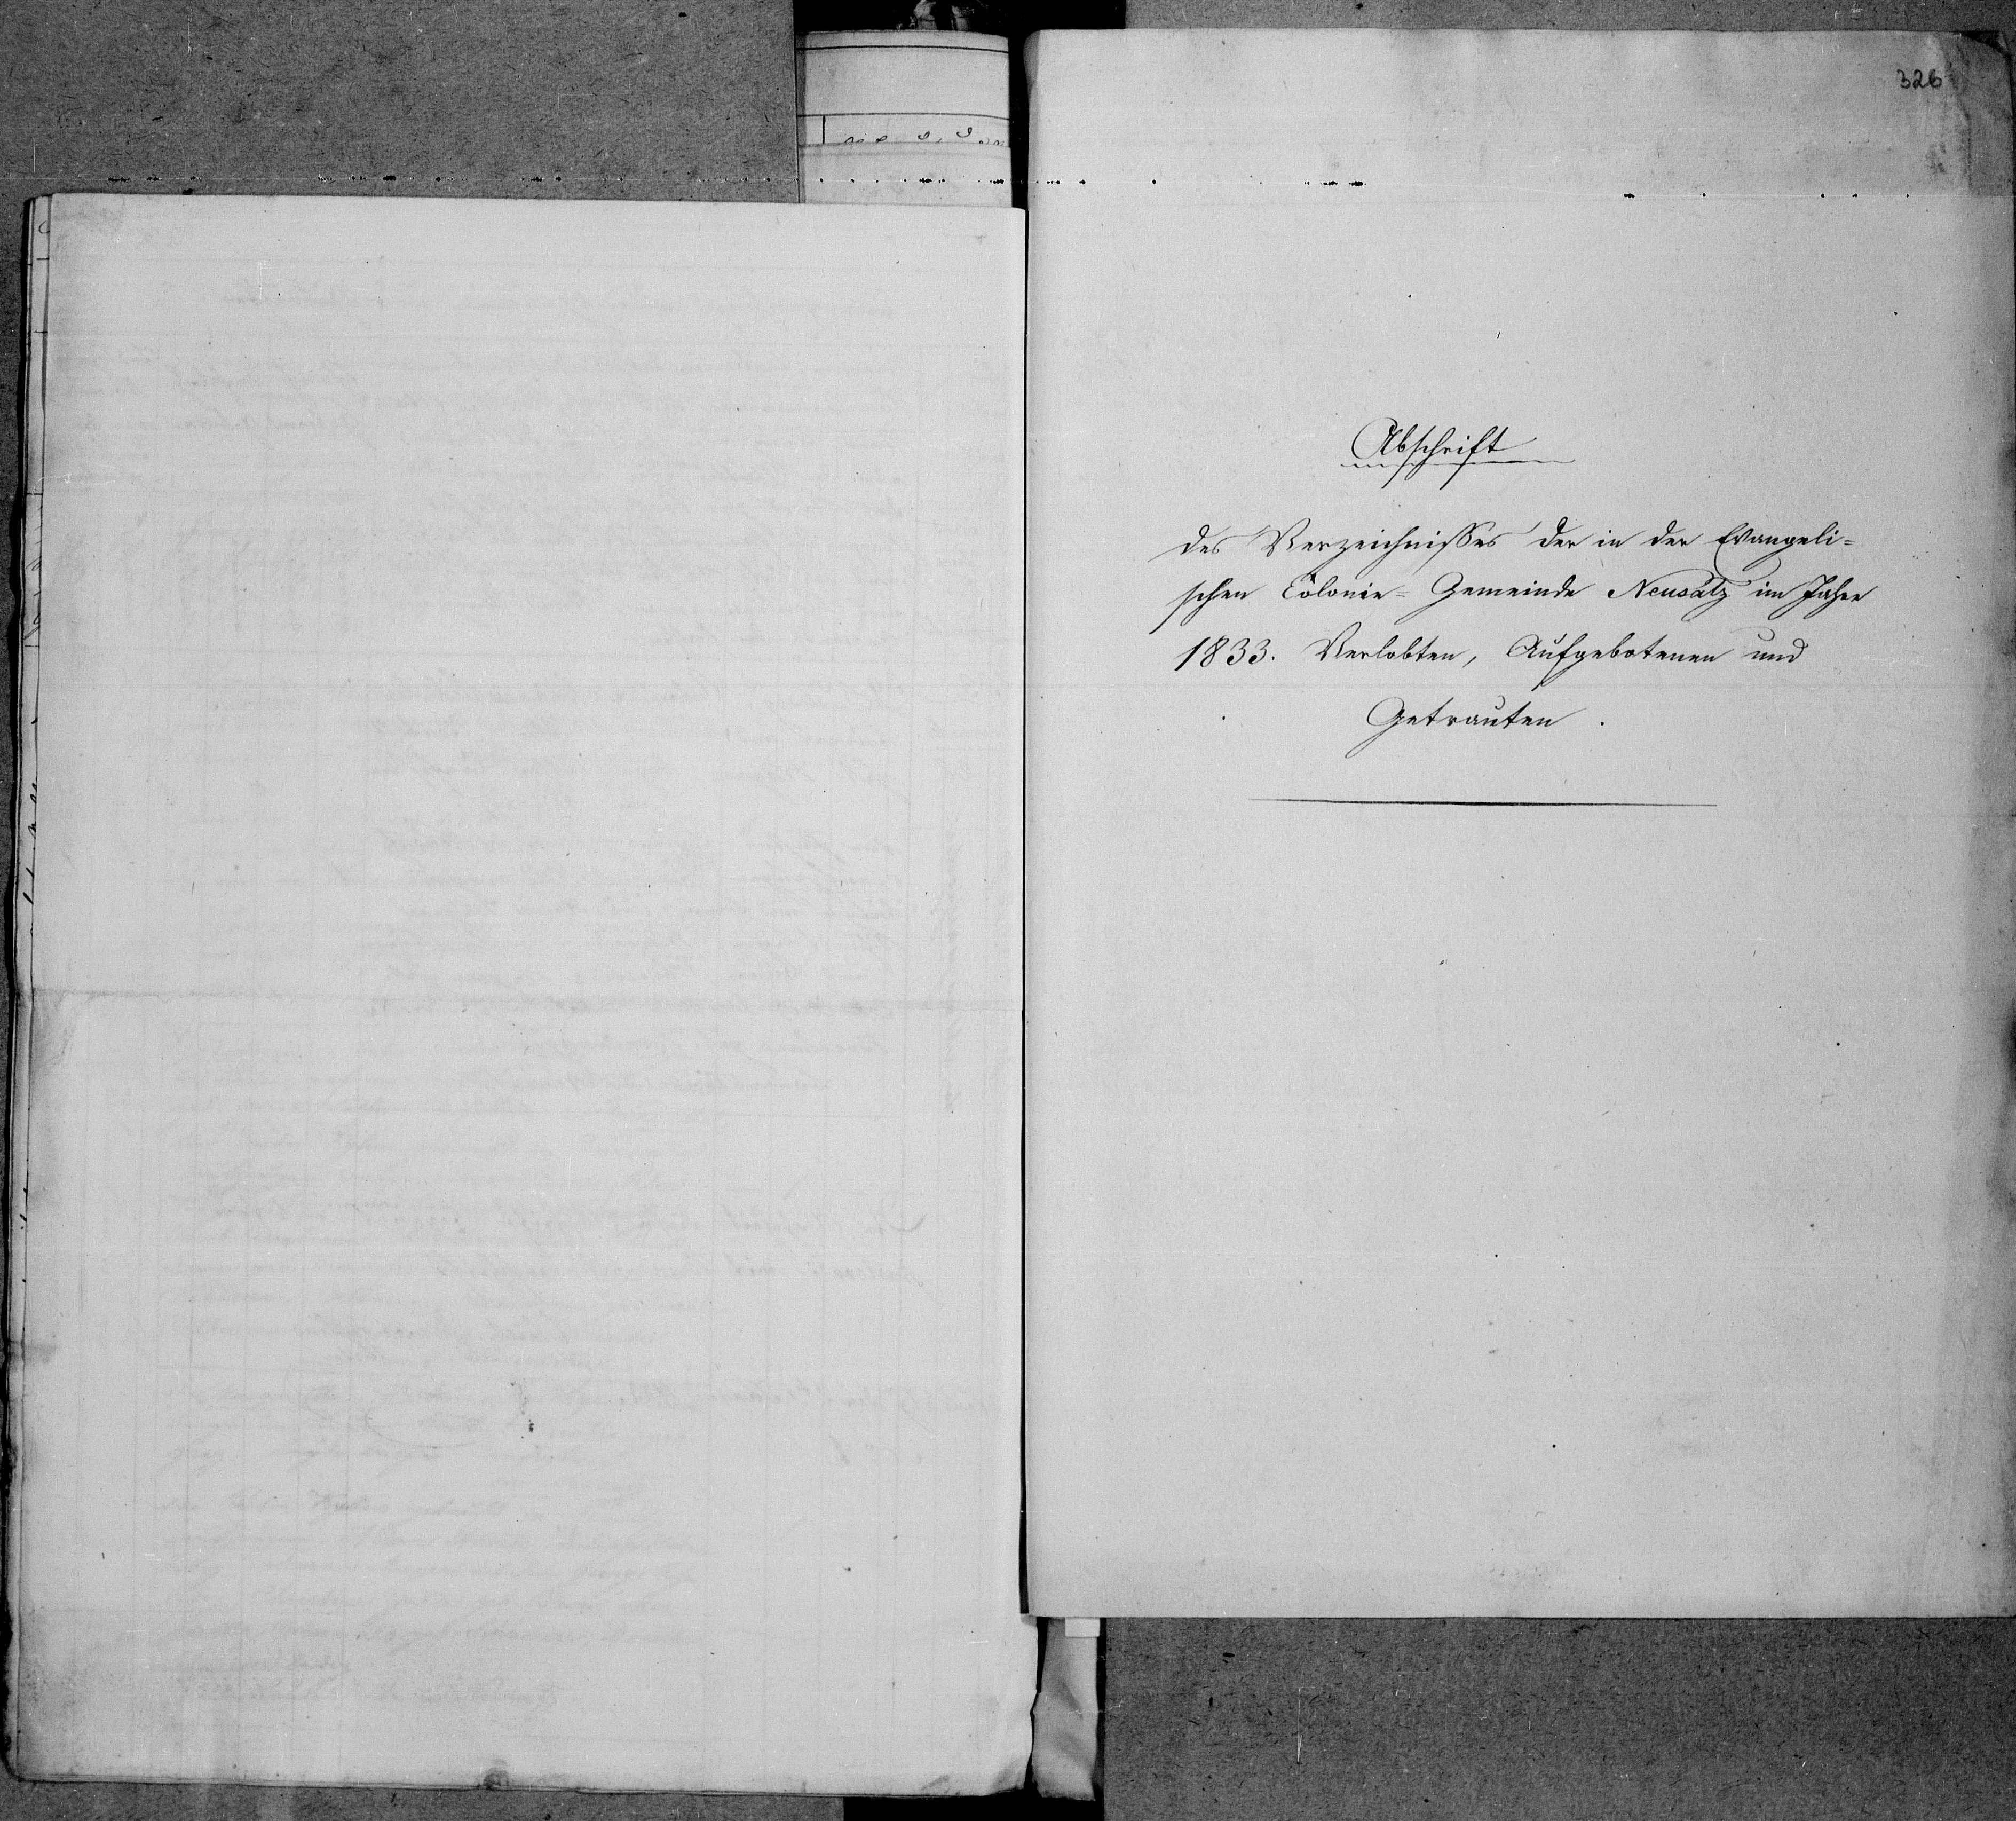 326
Abschrift
des Verzeichnisses der in der Evangeli=
schen Colonie=Gemeinde Neusatz im Jahre
1833. Verlobten, Aufgebotenen und
Getrauten.